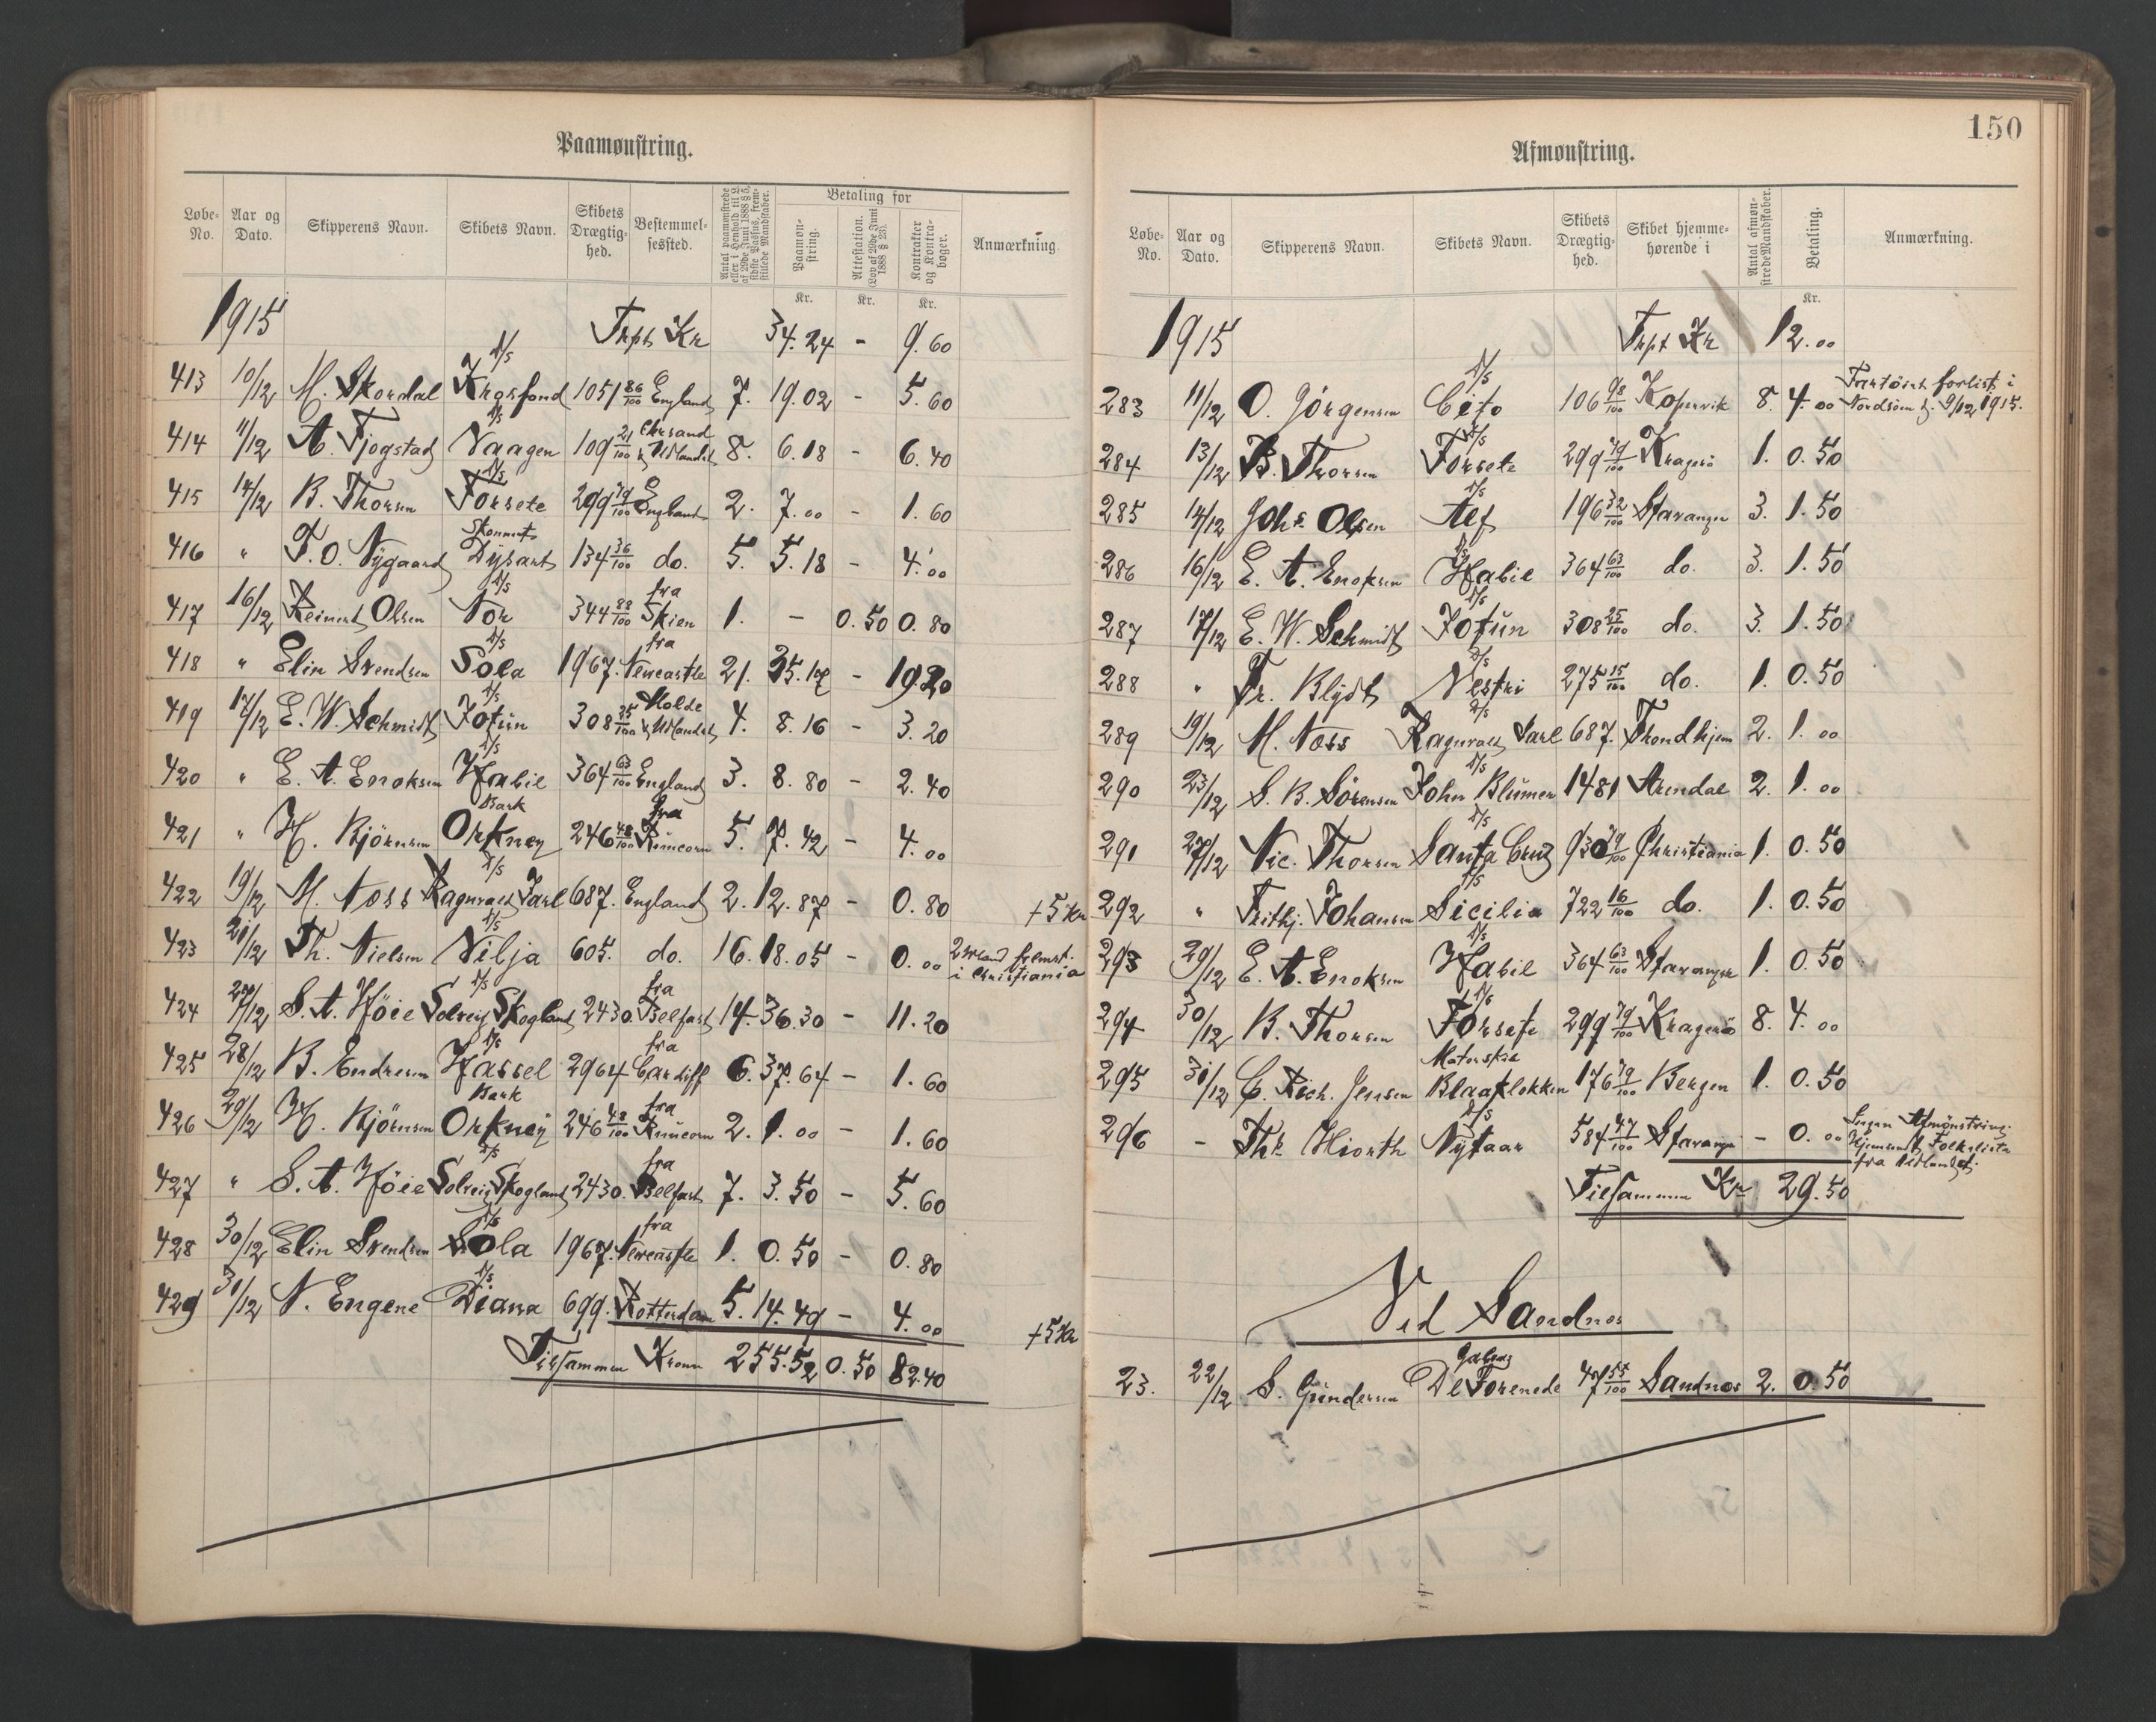 Paamønstring.
Løbe-No. Aar og Dato. Skipperens Navn. Skibets Navn. Skibets Drægtighed. Bestemmelsessted. Antal paamønstrede eller i Henhold til L. af 29de Juni 1888 § 5, sidste Passus, fremstillede Mandskaber. Betaling for Paamønstring. Attestation. (Lov af 29de Juni 1888 § 23). Kontrakter og Kontrabøger. Anmærkning
Kr. Kr. Kr.
1915 Trpt Kr 34.24 - 9.60
413 10/12 M. Skordal D/s Krosfond 1051 86/100 England 7. 19.02 - 5.60
414 11/12 A. Tjogstad D/s Vaagen 109 21/100 Chrsand & Udlandet 8. 6.18 - 6.40
415 14/12 B. Thorsen D/s Forsete 299 79/100 England 2. 7.00 - 1.60
416 " T. O. Nygaard Skonnert Dysart 134 36/100 do. 5. 5.18 - 4.00
417 16/12 Reinert Olsen D/s Nor 344 88/100 fra Skien 1. - 0.50 0.80
418 " Elin Svendsen D/s Sola 1967. fra Newcastle 21. 35.17 - 19.20
419 17/12 E. W. Schmidt D/s Jotun 308 25/100 Molde & Udlandet 4. 8.16 - 3.20
420 " E. A. Enoksen D/s Habil 364 63/100 England 3. 8.80 - 2.40
421 " H. Bjørnsen Bark Orkney 246 48/100 fra Runcorn 5. 7.42 - 4.00
422 19/12 M. Noss D/s Ragnvald Jarl 687. England 2. 12.87 - 0.80 +5 Kr
423 21/12 Th. Nielsen D/s Vilja 605. do. 16. 18.05 - 0.00 2 Mand fremst. i Christiania
424 27/12 S. A. Høie D/s Solveig Skogland 2430. fra Belfast 14. 36.30 - 11.20
425 28/12 B. Endresen D/s Hassel 2964 fra Cardiff 6. 37.64 - 1.60
426 29/12 H. Bjørnsen Bark Orkney 246 48/100 fra Runcorn 2. 1.00 - 1.60
427 " S. A. Høie D/s Solveig Skogland 2430. fra Belfast 7. 3.50 - 5.60
428 30/12 Elin Svendsen D/s Sola 1967. fra Newcastle 1. 0.50 - 0.80
429 31/12 N. Engene D/s Diana 699. Rotterdam 5. 14.49 - 4.00 +5 Kr
Tilsammen Kroner 255.52 0.50 82.40
150
Afmønstring.
Løbe-No. Aar og Dato. Skipperens Navn. Skibets Navn. Skibets Drægtighed. Skibet hjemmehørende i Antal afmønstrede Mandskaber. Betaling. Anmærkning.
Kr.
1915 Trpt Kr 12.00
283 11/12 O. Jørgensen D/s Cito 106 98/100 Kopervik 8. 4.00 Fartøiet forlist i Nordsøen d. 9/12 1915.
284 13/12 B. Thorsen D/s Forsete 299 79/100 Kragerø 1. 0.50
285 14/12 Johs Olsen D/s Alf 196 32/100 Stavanger 3. 1.50
286 16/12 E. A. Enoksen D/s Habil 364 63/100 do. 3. 1.50
287 17/12 E. W. Schmidt D/s Jotun 308 25/100 do. 3. 1.50
288 " Fr. Blydt D/s Vestri 275 15/100 do. 1. 0.50
289 19/12 M. Noss D/s Ragnvald Jarl 687. Trondhjem 2. 1.00
290 23/12 S. B. Sørensen D/s John Blumer 1481 Arendal 2. 1.00
291 27/12 Nic. Thorsen D/s Santa Cruz 930 79/100 Christiania 1. 0.50
292 " Frithj. Johansen D/s Sicilia 722 16/100 do. 1. 0.50
293 29/12 E. A. Enoksen D/s Habil 364 63/100 Stavanger 1. 0.50
294 30/12 B. Thorsen D/s Forsete 299 79/100 Kragerø 8. 4.00
295 31/12 C. Rich. Jensen Motorskib Blaaklokken 176 79/100 Bergen 1. 0.50
296 - Ths Hiorth D/s Nytaar 584 47/100 Stavanger - 0.00 Ingen Afmønstring. Hjemsendt Folkeliste fra Udlandet.
Tilsammen Kr 29.50
Ved Sandnes
23. 22/12 S. Gundersen Galeas De Forenede 47 55/100 Sandnes 2. 0.50